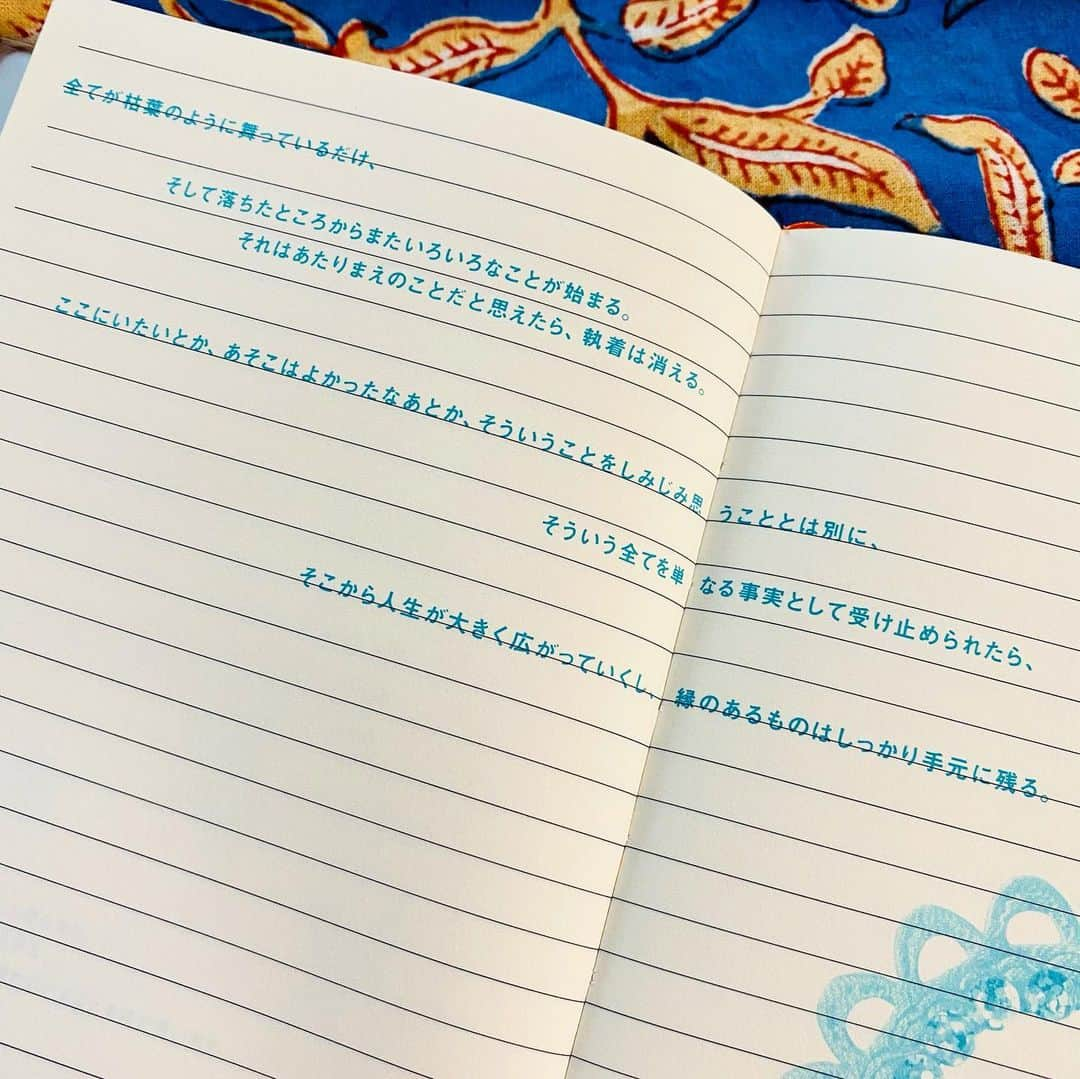 全てが枯葉のように舞っているだけ、
そして落ちたところからまたいろいろなことが始まる。
それはあたりまえのことだと思えたら、執着は消える。
ここにいたいとか、あそこはよかったなあとか、そういうことをしみじみ思うこととは別に、
そういう全てを単なる事実として受け止められたら、
そこから人生が大きく広がっていくし、縁のあるものはしっかり手元に残る。